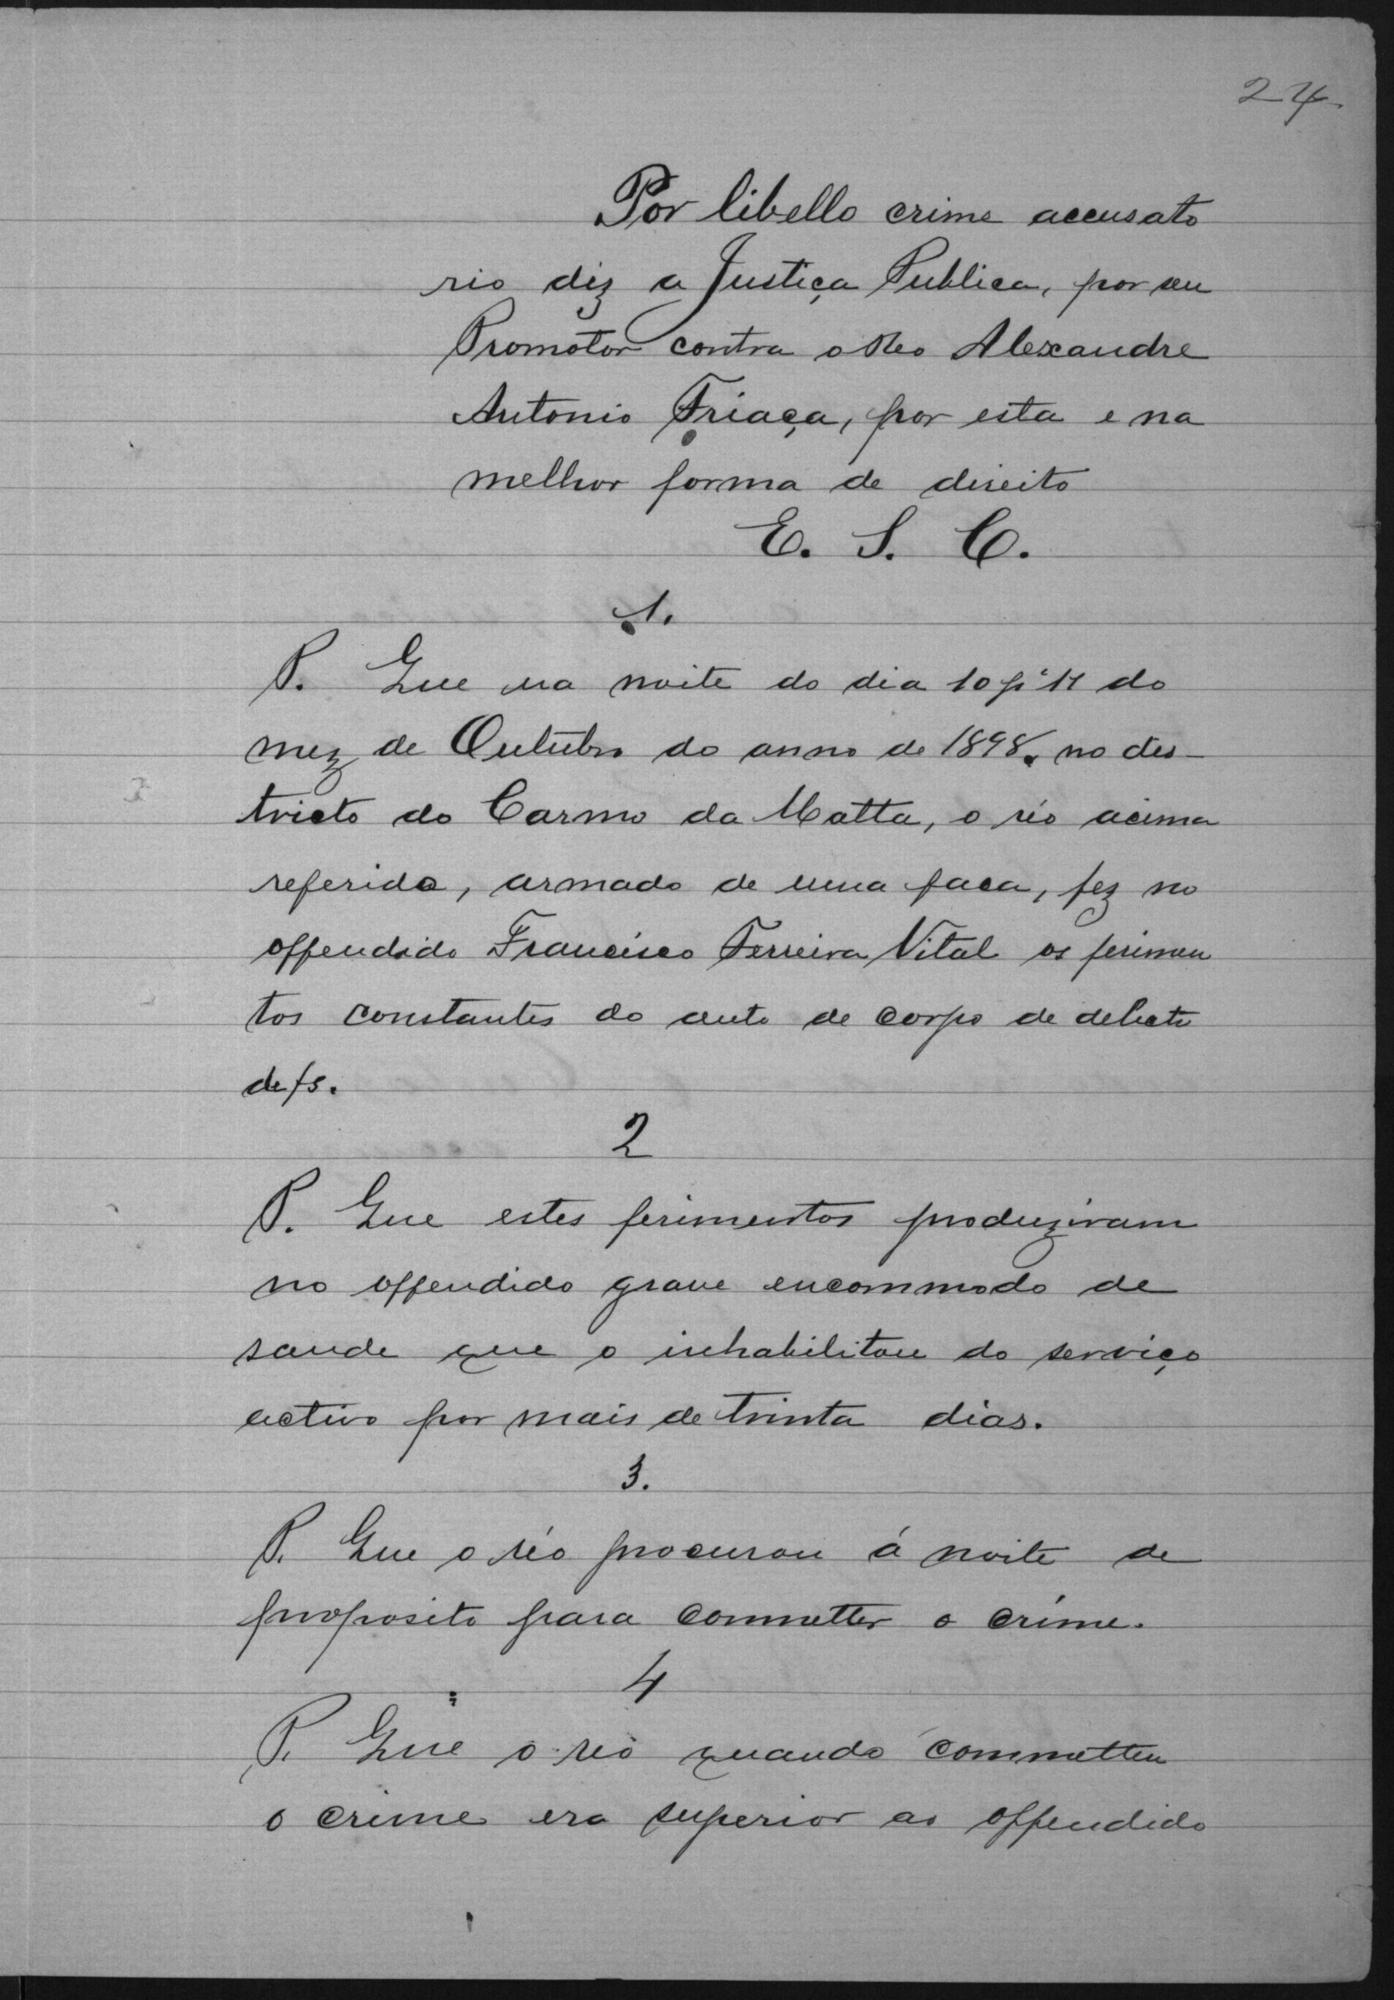 24
Por libello crime accusato
rio diz a Justiça Publica, por seu
Promotor contra o Reo Alexandre
Antonio Friaça, por esta e na
melhor forma de direito
E. S. C.
1.
P. Que na noite do dia 10 pª 11 do
mez de Outubro do anno de 1898, no des-
tricto do Carmo da Matta, o réo acima
referido, armado de uma faca, fez no
offendido Francisco Ferreira Vital os ferimen
tos constantes do auto de corpo de delicto
de fs.
2
P. Que estes ferimentos produziram
no offendido grave encommodo de
saude que o inhabilitou do serviço
activo por mais de trinta dias.
3.
P. Que o réo procurou á noite de
proposito para commetter o crime.
4
P. Que o reo quando commetteu
o crime era superior ao offendido